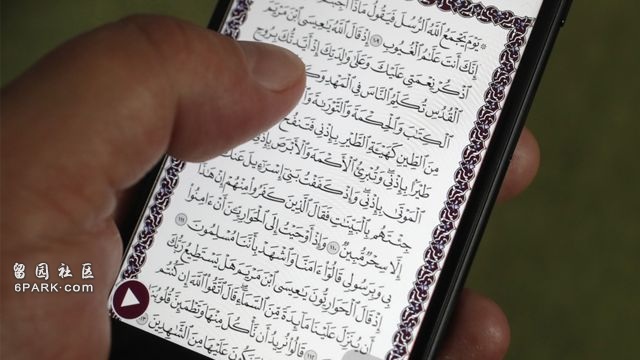 ۞ يَوْمَ يَجْمَعُ ٱللَّهُ ٱلرُّسُلَ فَيَقُولُ مَاذَآ
إِنَّكَ أَنتَ عَلَّٰمُ ٱلْغُيُوبِ ١٠٩ إِذْ قَالَ ٱللَّهُ يَٰعِيسَى ٱبْنَ مَرْيَمَ
ٱذْكُرْ نِعْمَتِى عَلَيْكَ وَعَلَىٰ وَٰلِدَتِكَ إِذْ أَيَّدتُّكَ بِرُوحِ
ٱلْقُدُسِ تُكَلِّمُ ٱلنَّاسَ فِى ٱلْمَهْدِ
ٱلْكِتَٰبَ وَٱلْحِكْمَةَ وَٱلتَّوْرَىٰةَ
مِنَ ٱلطِّينِ كَهَيْـَٔةِ ٱلطَّيْرِ بِإِذْنِى فَتَنفُخُ
طَيْرًۢا بِإِذْنِى وَتُبْرِئُ ٱلْأَكْمَهَ وَٱلْأَبْرَصَ
ٱلْمَوْتَىٰ بِإِذْنِى وَإِذْ كَفَفْتُ بَنِىٓ إِسْرَٰٓءِيلَ عَنكَ
جِئْتَهُم بِٱلْبَيِّنَٰتِ فَقَالَ ٱلَّذِينَ كَفَرُوا۟ مِنْهُمْ إِنْ هَٰذَآ
إِلَّا سِحْرٌ مُّبِينٌ ١١٠ وَإِذْ أَوْحَيْتُ إِلَى ٱلْحَوَارِيِّـۧنَ أَنْ ءَامِنُوا۟
بِى وَبِرَسُولِى قَالُوٓا۟ ءَامَنَّا وَٱشْهَدْ بِأَنَّنَا مُسْلِمُونَ ١١١
إِذْ قَالَ ٱلْحَوَارِيُّونَ يَٰعِيسَى ٱبْنَ مَرْيَمَ هَلْ يَسْتَطِيعُ رَبُّكَ
أَن يُنَزِّلَ عَلَيْنَا مَآئِدَةً مِّنَ ٱلسَّمَآءِ قَالَ ٱتَّقُوا۟ ٱللَّهَ إِن كُنتُم
١١٢ قَالُوا۟ نُرِيدُ أَن نَّأْكُلَ مِنْهَا وَتَطْمَئِنَّ قُلُوبُنَا
وَنَكُونَ عَلَيْهَا مِنَ ٱلشَّٰهِدِينَ ١١٣
留园社区
6PARK.com